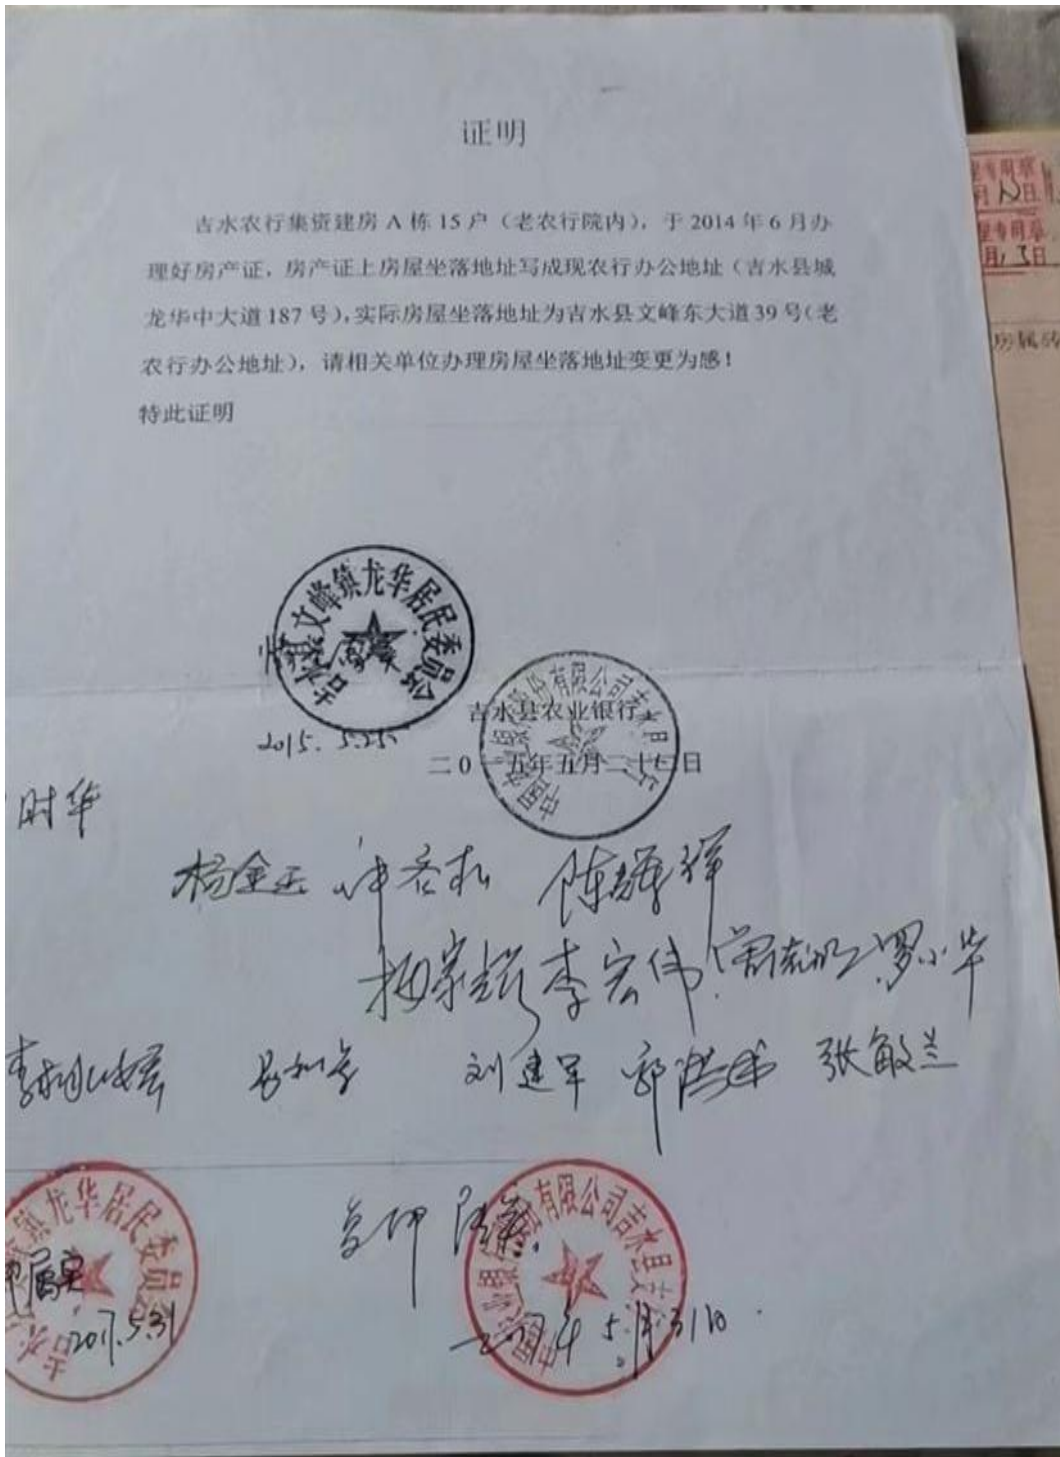 证明
吉水农行集资建房 A 栋 15 户（老农行院内），于 2014 年 6 月办
理好房产证，房产证上房屋坐落地址写成现农行办公地址（吉水县城
龙华中大道 187 号），实际房屋坐落地址为吉水县文峰东大道 39 号（老
农行办公地址），请相关单位办理房屋坐落地址变更为感！
特此证明
吉水县文峰镇龙华居民委员会
2015. 5.25
吉水县农业银行
二0一五年五月二十 日
有限公司吉水县
时华
杨金 陈
李宏伟 罗小华
刘建军 郭 张敏兰
龙华居民委员
属实
2017.5.31
复印属实
有限公司吉水县支
5月31日
专用章
月 日
专用章
月 日
房属